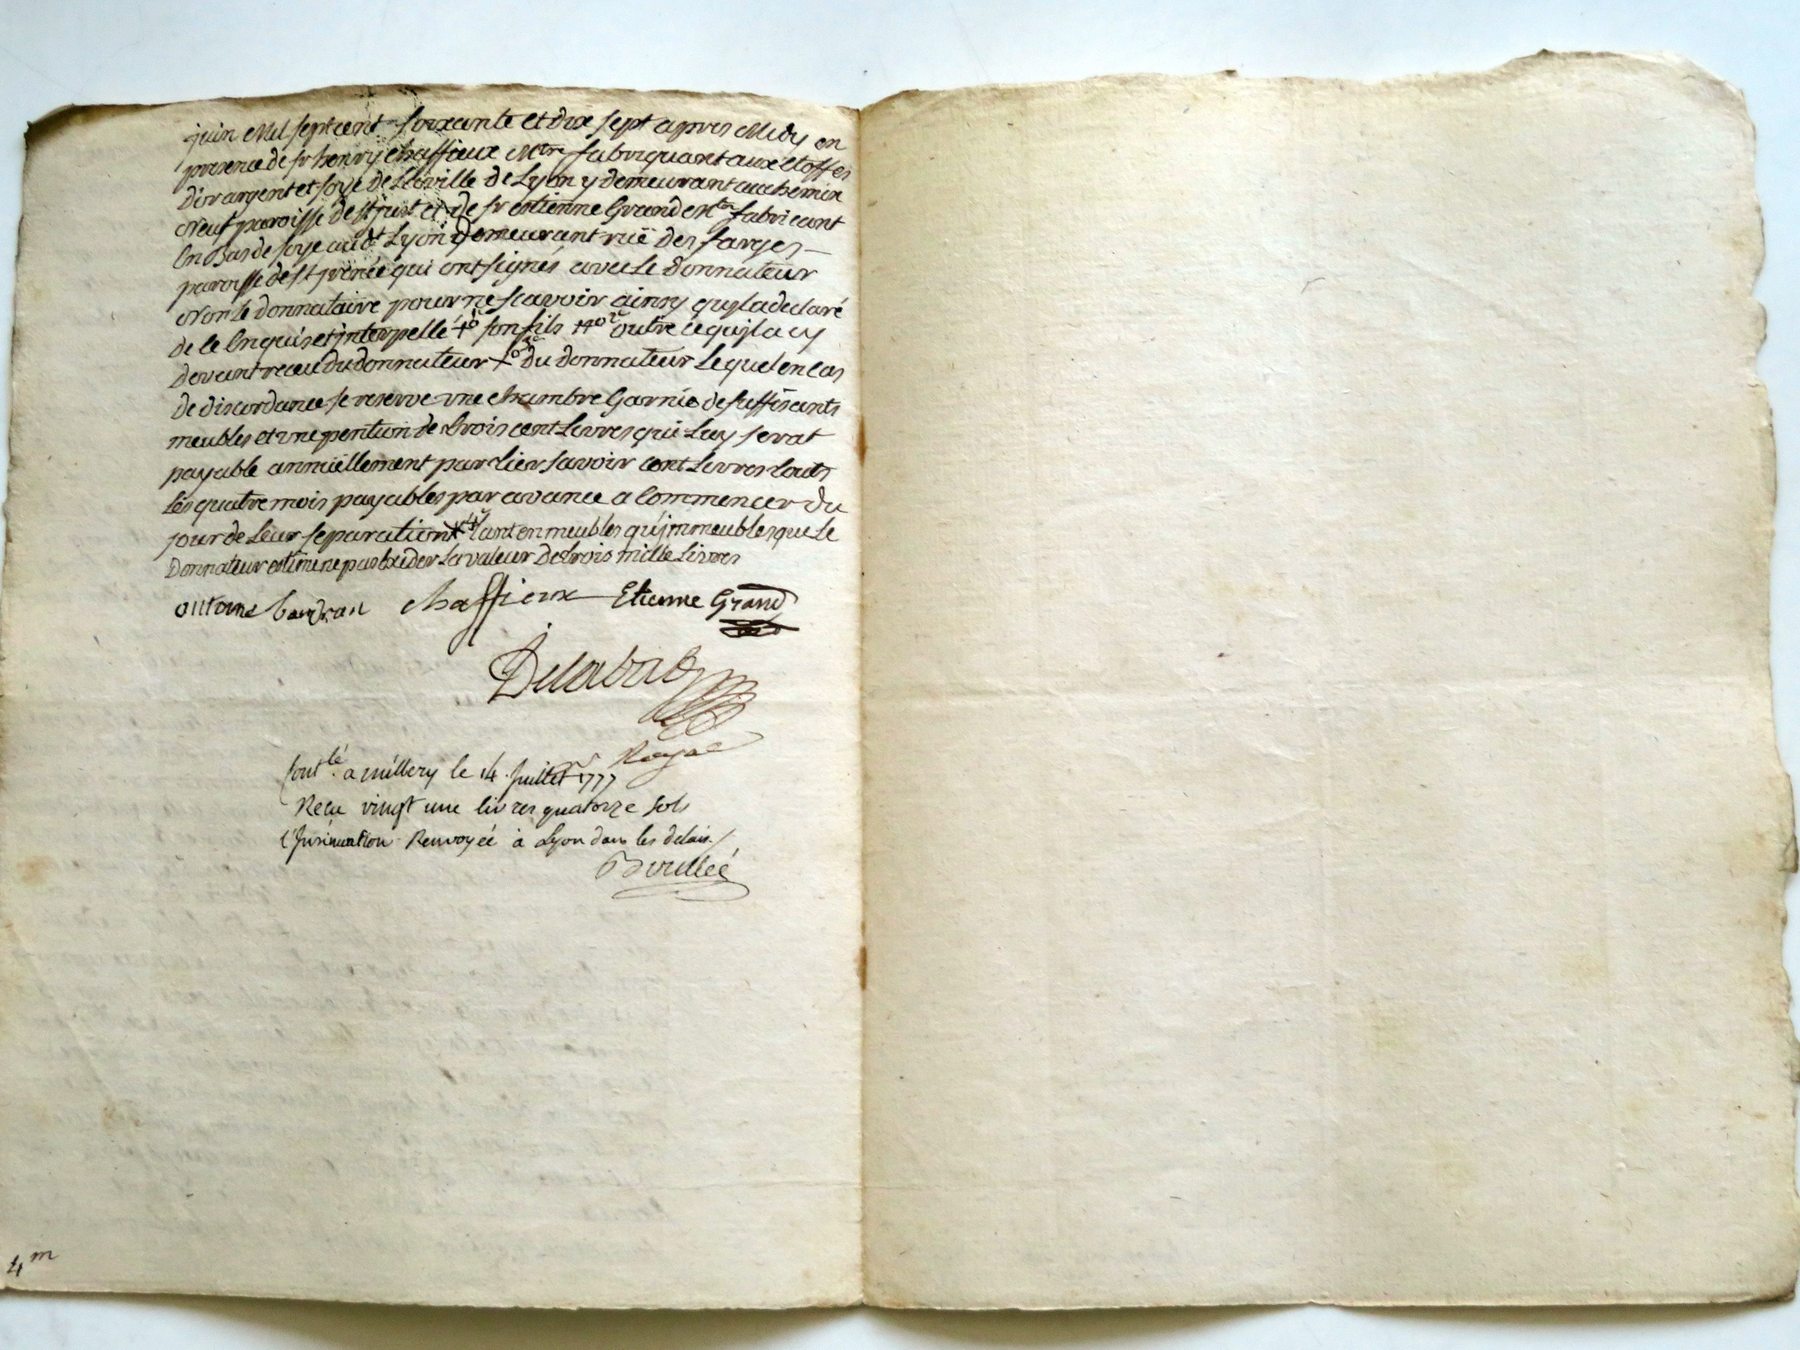 juin Mil sept cent soixante et dix sept apres Midy en
presence de sr henry Chaffieux Mtre fabriquant aux etoffes
D'or argent et soye de La ville de Lyon y demeurant au chemin
Neuf paroisse de st just et de sr estienne Grand Mtre fabricant
En Bas de soye aud. Lyon Demeurant ruë des farges
paroisse de st jrenée qui ont signés avec Le Donnateur
Non Le donnataire pour ne scavoir ainsy quyla declaré
de ce Enquis et jnterpellé son fils outre ce quyl a cy
Devant receu du donnateur du donnateur Lequel en Cas
de discordance se reserve une Chambre Garnie de suffisants
meubles et une pention de trois cent Livres qui Luy serat
payable annuellement par tier savoir cent Livres touts
Les quatre mois payables par avance a Commencer du
jour de Leur separation tant en meubles qu'jmmeubles que Le
Donnateur estime ne pas Exeder La valeur De trois mille Livres
Chaffieux Etienne Grand
Royal
Contlé a Millery le 14 Juillet 1777
Recu vingt une livres quatorze sols
l'Jnsinuation Renvoyée à Lyon dans les delais
4m